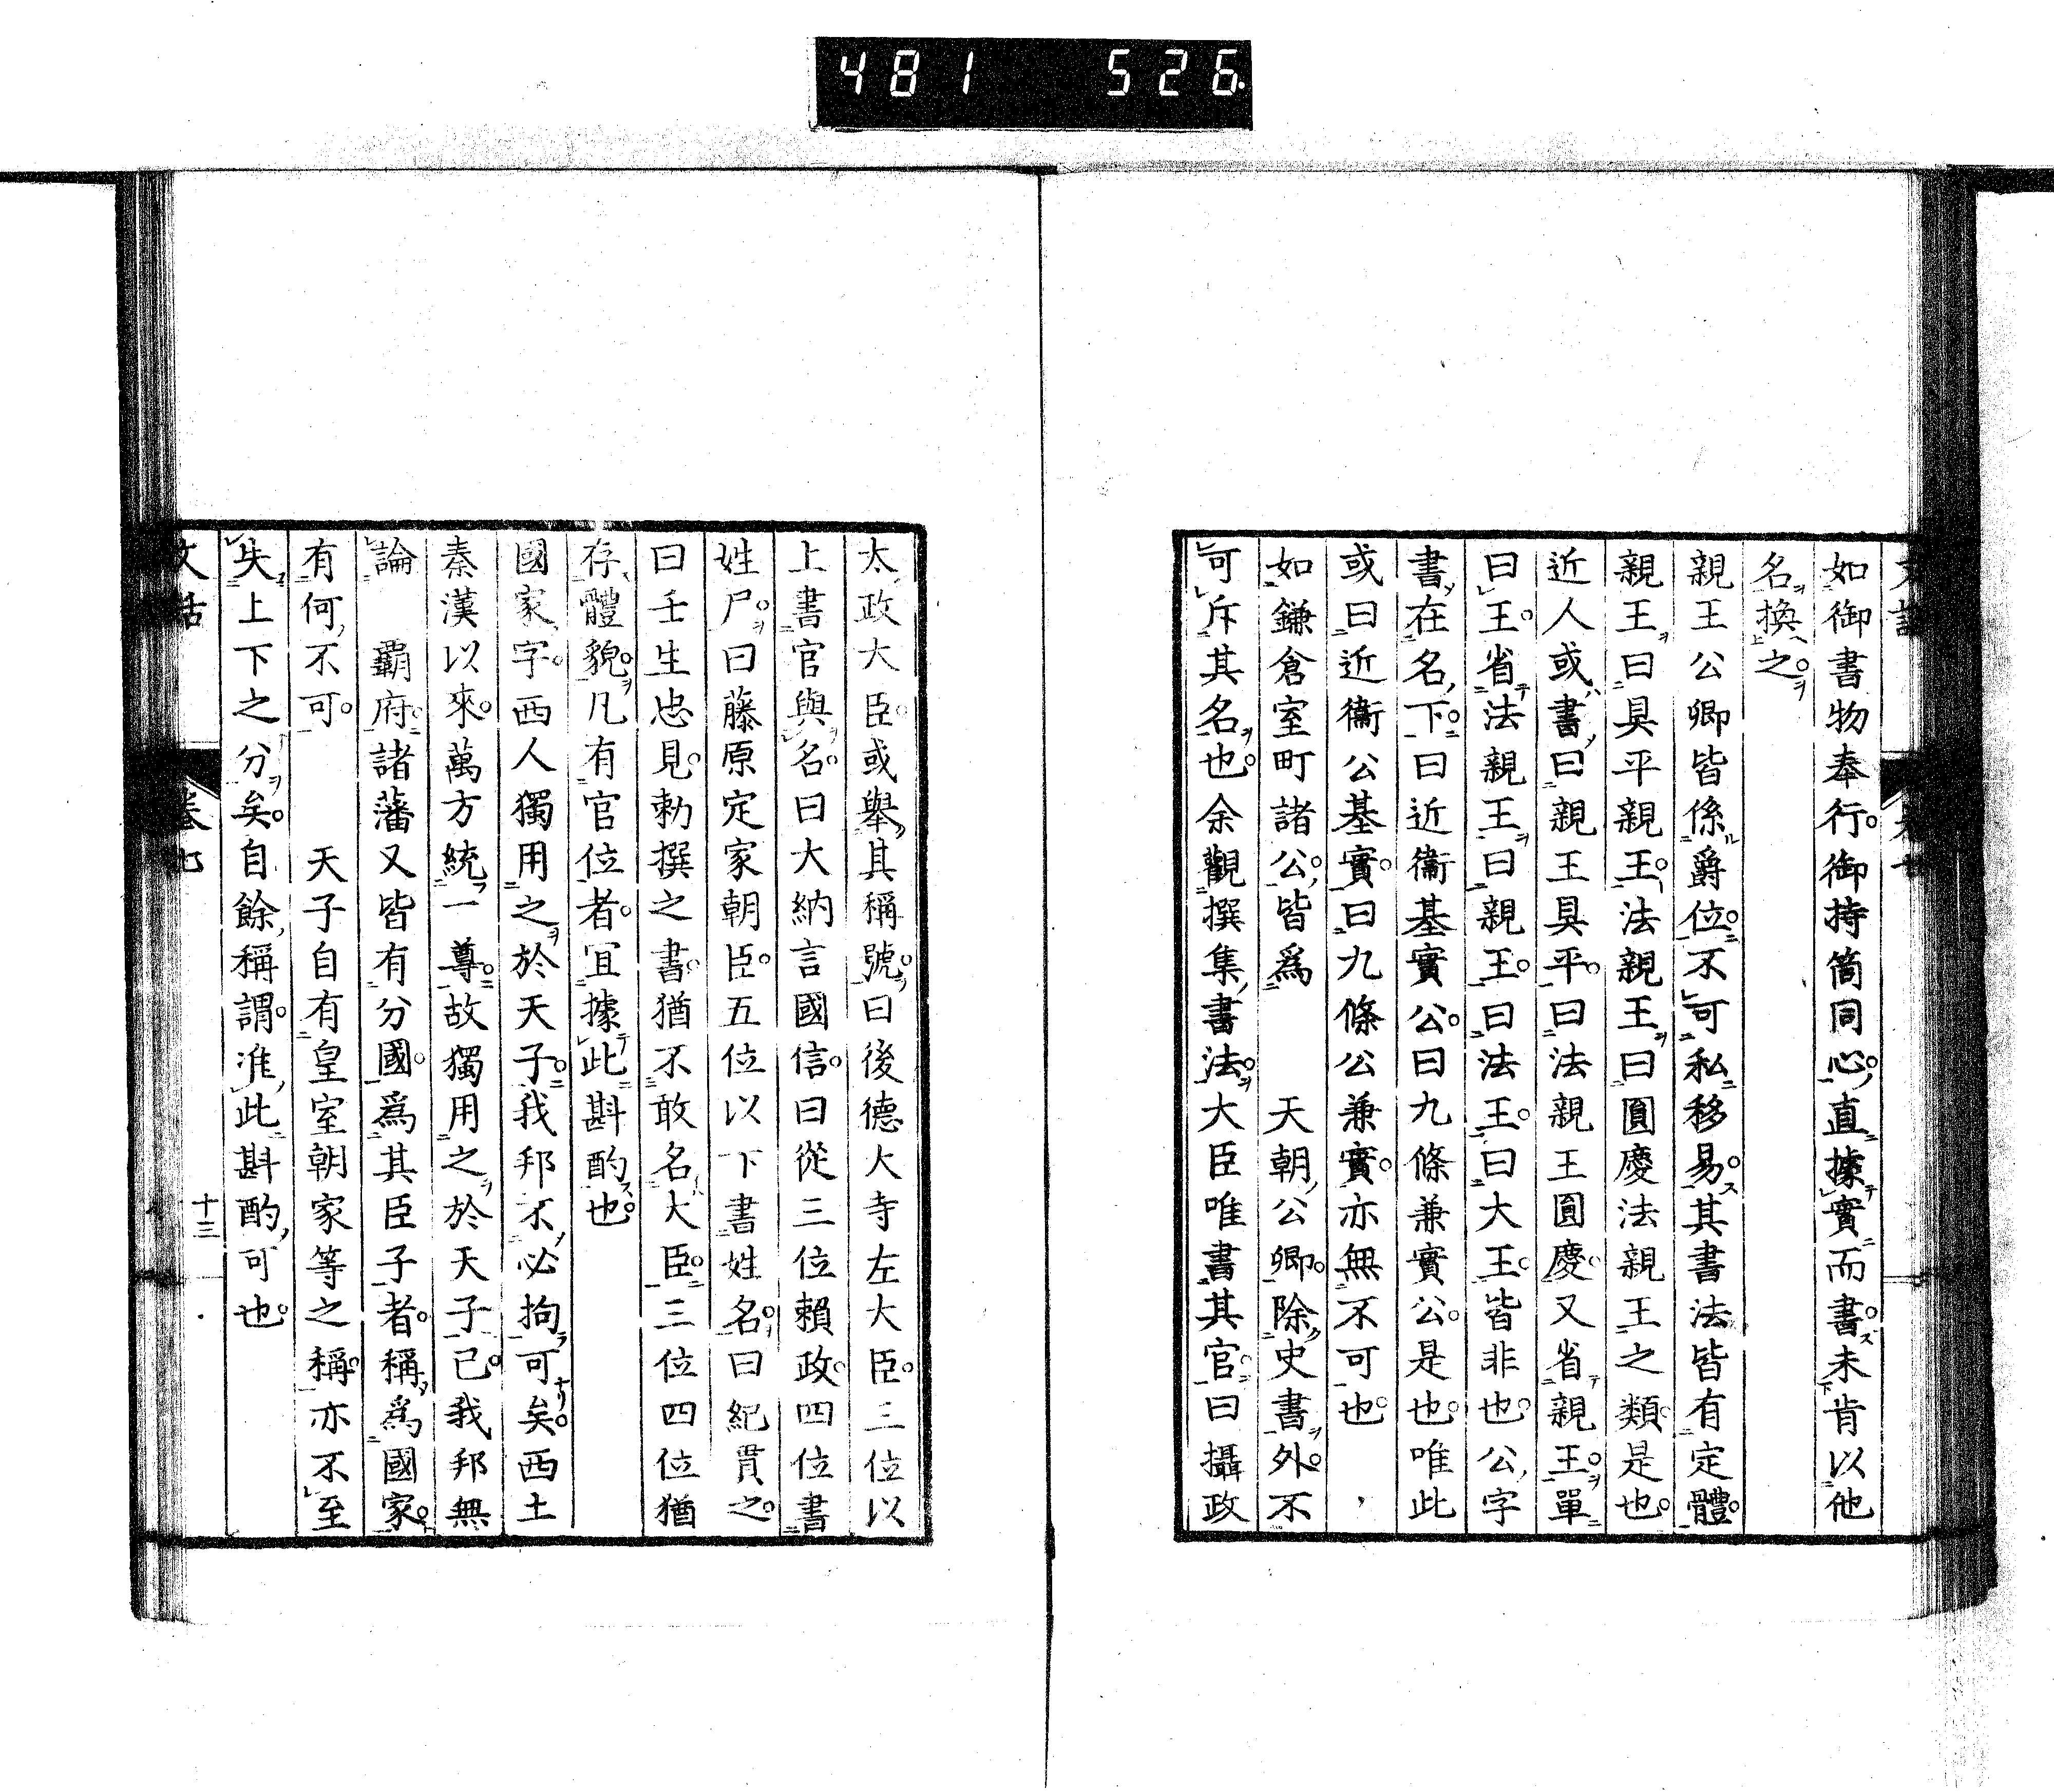 481 526
如御書物奉行。御持筒同心。直據實而書。未肯以他
名換之。
親王公卿皆係爵位。不可私移易。其書法皆有定體。
親王曰具平親王。法親王曰圓慶法親王之類是也。
近人或書曰親王具平。曰法親王圓慶。又省親王。單
曰王。省法親王曰親王。曰法王。曰大王。皆非也。公字
書在名下。曰近衞基實公。曰九條兼實公。是也。唯此
或曰近衞公基實。曰九條公兼實。亦無不可也。
如鎌倉室町諸公。皆爲 天朝公卿。除史書外。不
可斥其名也。余觀撰集書法。大臣唯書其官。曰攝政
太政大臣。或擧其稱號。曰後德大寺左大臣。三位以
上書官與名。曰大納言國信。曰從三位賴政。四位書
姓尸。曰藤原定家朝臣。五位以下書姓名。曰紀貫之。
曰壬生忠見。勅撰之書。猶不敢名大臣。三位四位猶
存體貌。凡有官位者。宜據此斟酌也。
國家字。西人獨用之於天子。我邦不必拘可矣。西土
秦漢以來。萬方統一尊。故獨用之於天子已。我邦無
論 覇府。諸藩又皆有分國。爲其臣子者。稱爲國家。
有何不可。 天子自有皇室朝家等之稱。亦不至
失上下之分矣。自餘稱謂。准此斟酌可也。
文話 卷七 十三